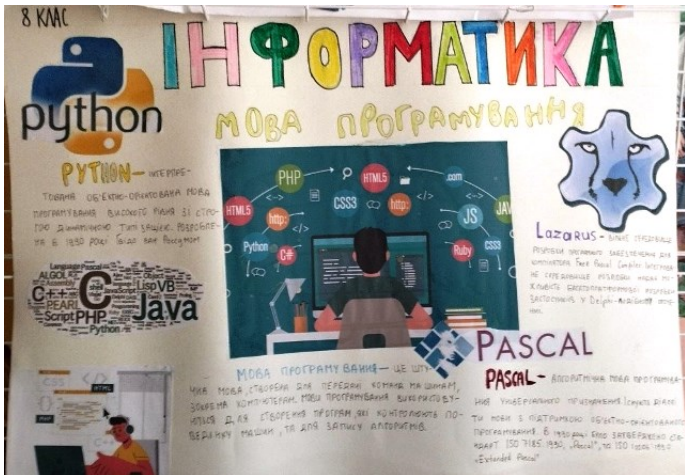 8 КЛАС
ІНФОРМАТИКА
МОВА ПРОГРАМУВАННЯ
python
PYTHON- ІНТЕРПРЕ-
ТОВАНА ОБ'ЄКТНО-ОРІЄНТОВАНА МОВА
ПРОГРАМУВАННЯ ВИСОКОГО РІВНЯ ЗІ СТРО-
ГОЮ ДИНАМІЧНОЮ ТИПІЗАЦІЄЮ. РОЗРОБЛЕ-
НА В 1990 РОЦІ Гвідо ван Россумом
PHP
HTML5
.com
HTML5
CSS3
http:
JS
JAV
http:
Python
C#
Ruby
CSS3
Lazarus - ВІЛЬНЕ СЕРЕДОВИЩЕ
РОЗРОБКИ ПРОГРАМНОГО ЗАБЕЗПЕЧЕННЯ ДЛЯ
КОМПІЛЯТОРА Free Pascal Compiler
НЕ СЕРЕДОВИЩЕ РОЗРОБКИ НАДАЄ МО-
ЖЛИВІСТЬ КРОСПЛАТФОРМОВОЇ РОЗРОБКИ
ЗАСТОСУНКІВ У Delphi-
Language Pascal
ALGOL
Assembly
Object
C++
C
Lisp VB
PEARL
Script PHP
Java
Python
CSS
HTML
PHP
C++
МОВА ПРОГРАМУВАННЯ - ЦЕ ШТУ-
ЧНА МОВА, СТВОРЕНА ДЛЯ ПЕРЕДАЧІ КОМАНД МАШИНАМ,
ЗОКРЕМА КОМП'ЮТЕРАМ. МОВИ ПРОГРАМУВАННЯ ВИКОРИСТОВУ-
ЮТЬСЯ ДЛЯ СТВОРЕННЯ ПРОГРАМ, ЯКІ КОНТРОЛЮЮТЬ ПО-
ВЕДІНКУ МАШИН, ТА ДЛЯ ЗАПИСУ АЛГОРИТМІВ.
PASCAL
PASCAL - АЛГОРИТМІЧНА МОВА ПРОГРАМУВА-
ННЯ УНІВЕРСАЛЬНОГО ПРИЗНАЧЕННЯ. Існують ДІАЛЕК-
ТИ МОВИ З ПІДТРИМКОЮ ОБ'ЄКТНО-ОРІЄНТОВАНОГО
ПРОГРАМУВАННЯ. В 1990 РОЦІ БУЛО ЗАТВЕРДЖЕНО СТА-
НДАРТ ISO 7185:1990 „Pascal", ТА ISO 10206:1990
„Extended Pascal"